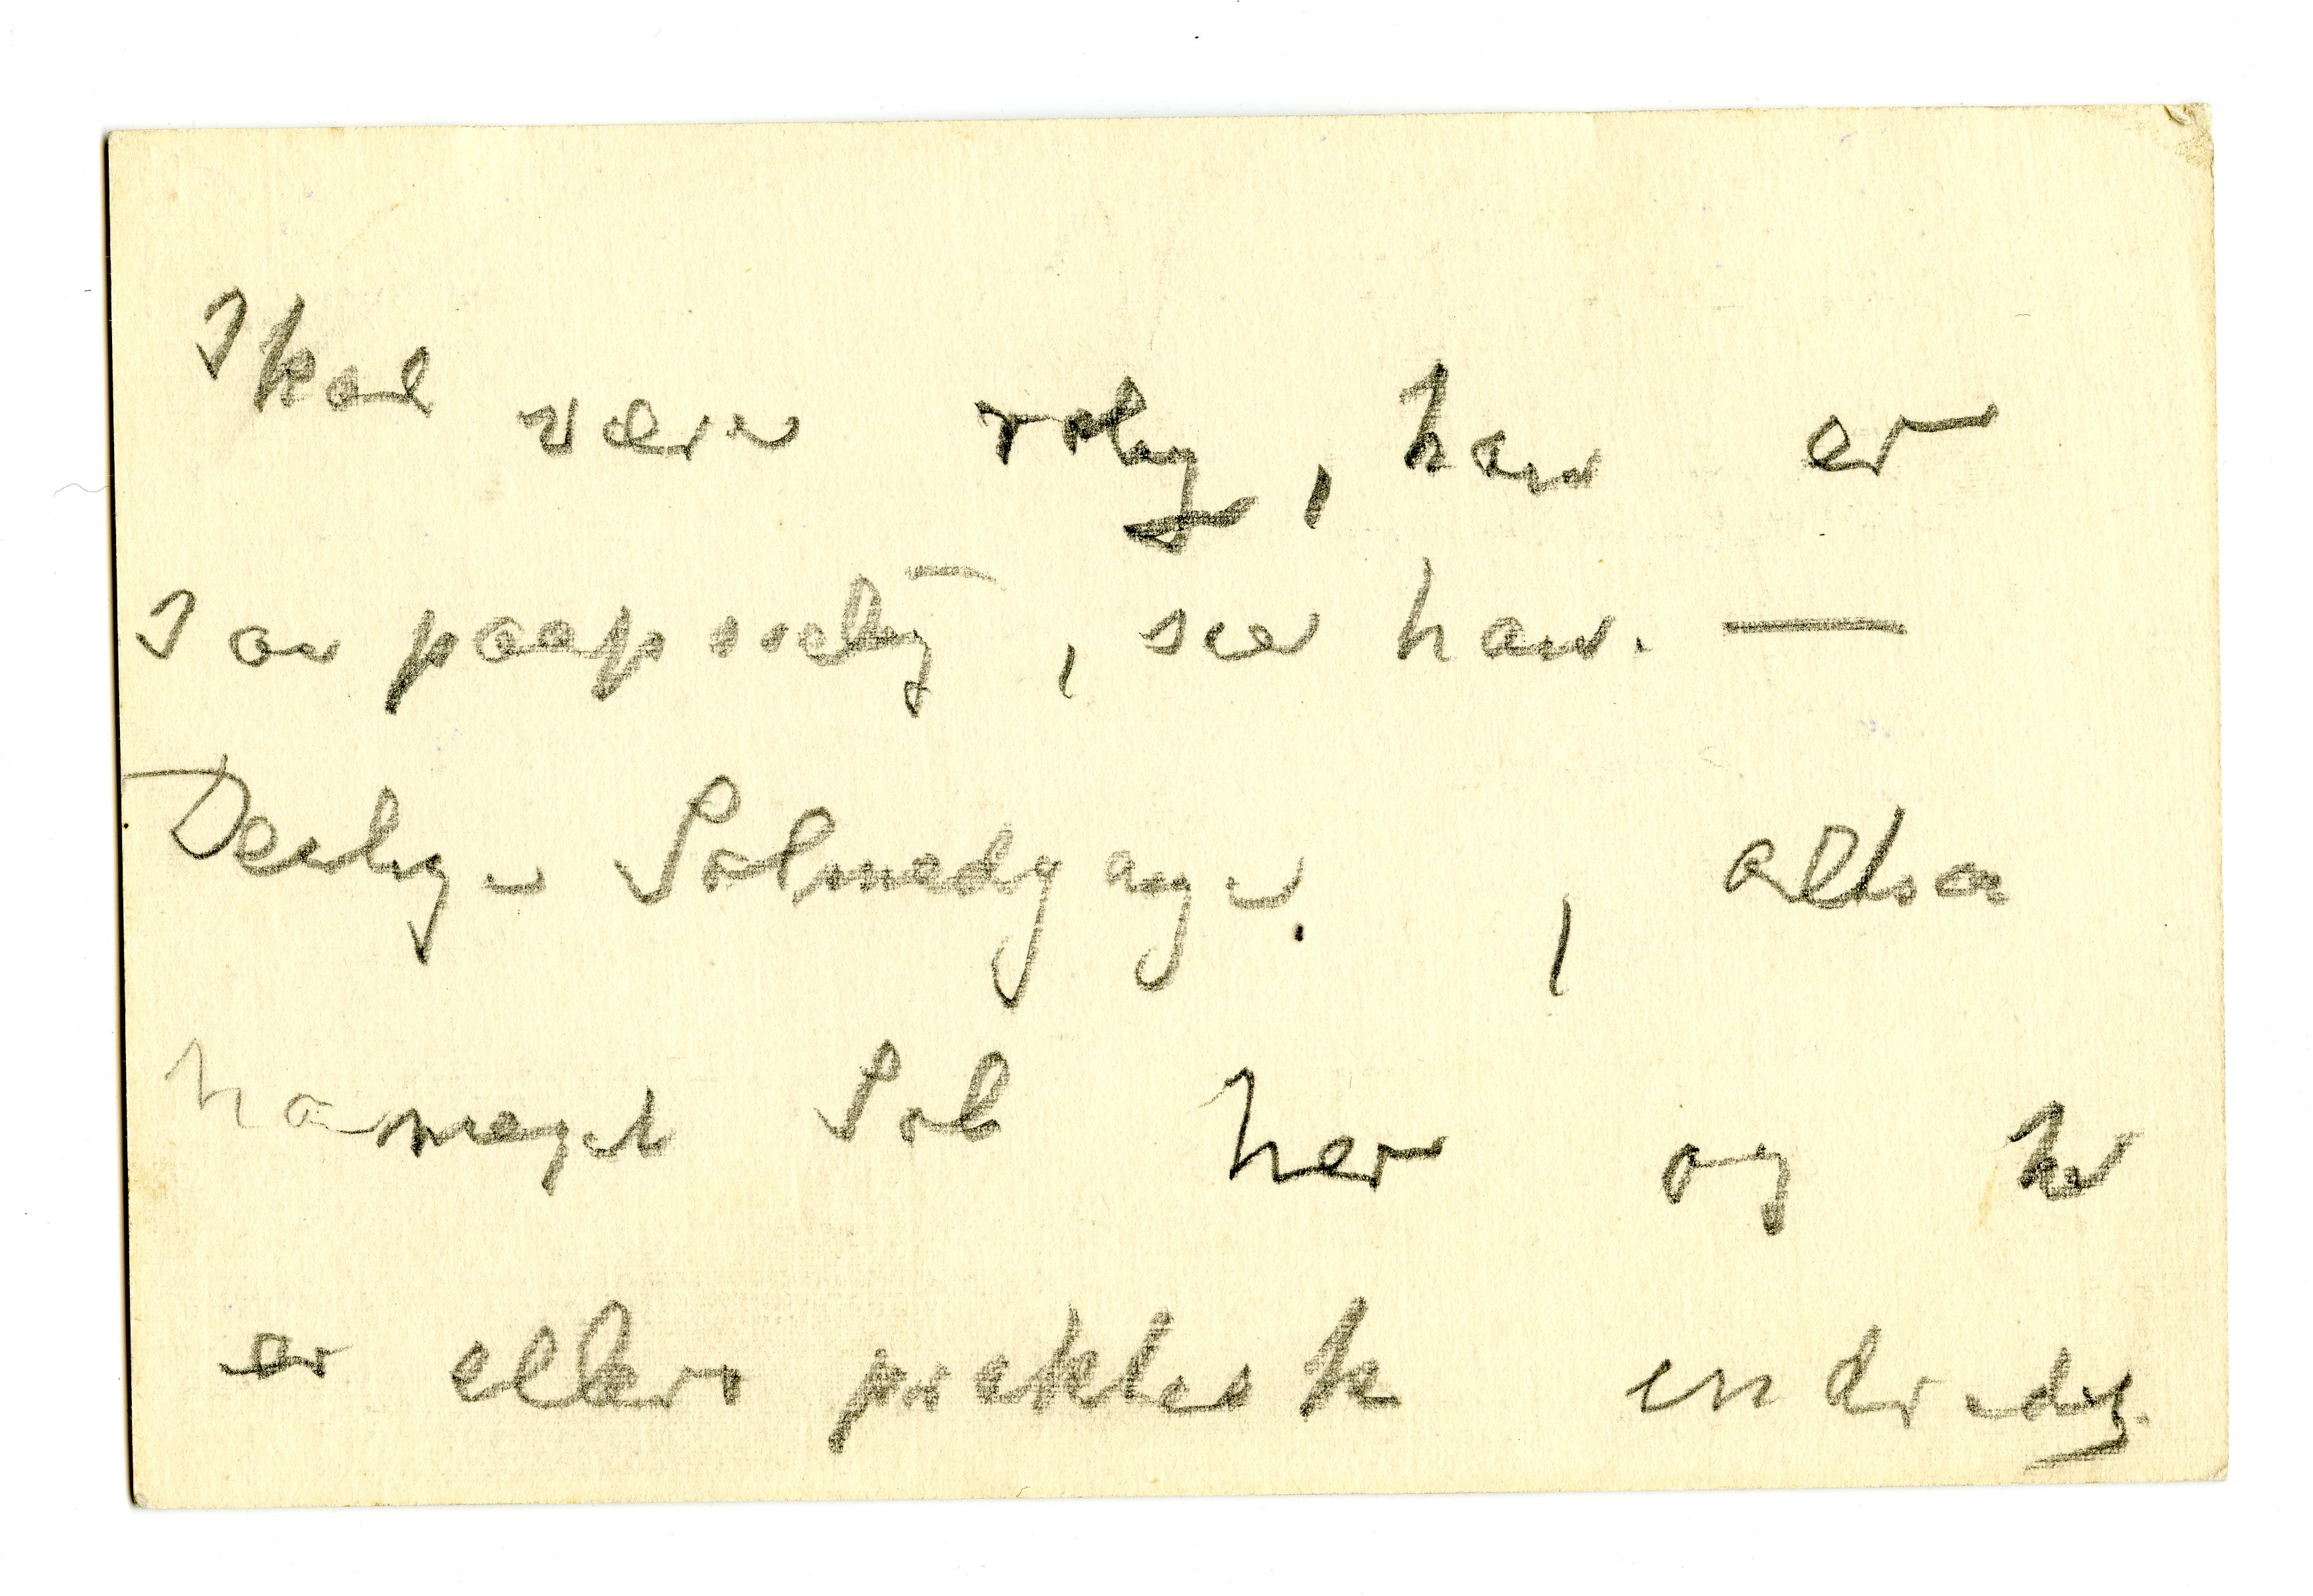 Skal være rolig, han er
paapasselig, sier han. —
Deilige Solnedganger. , altsaa
meget Sol her og her
er ellers praktisk indredet.